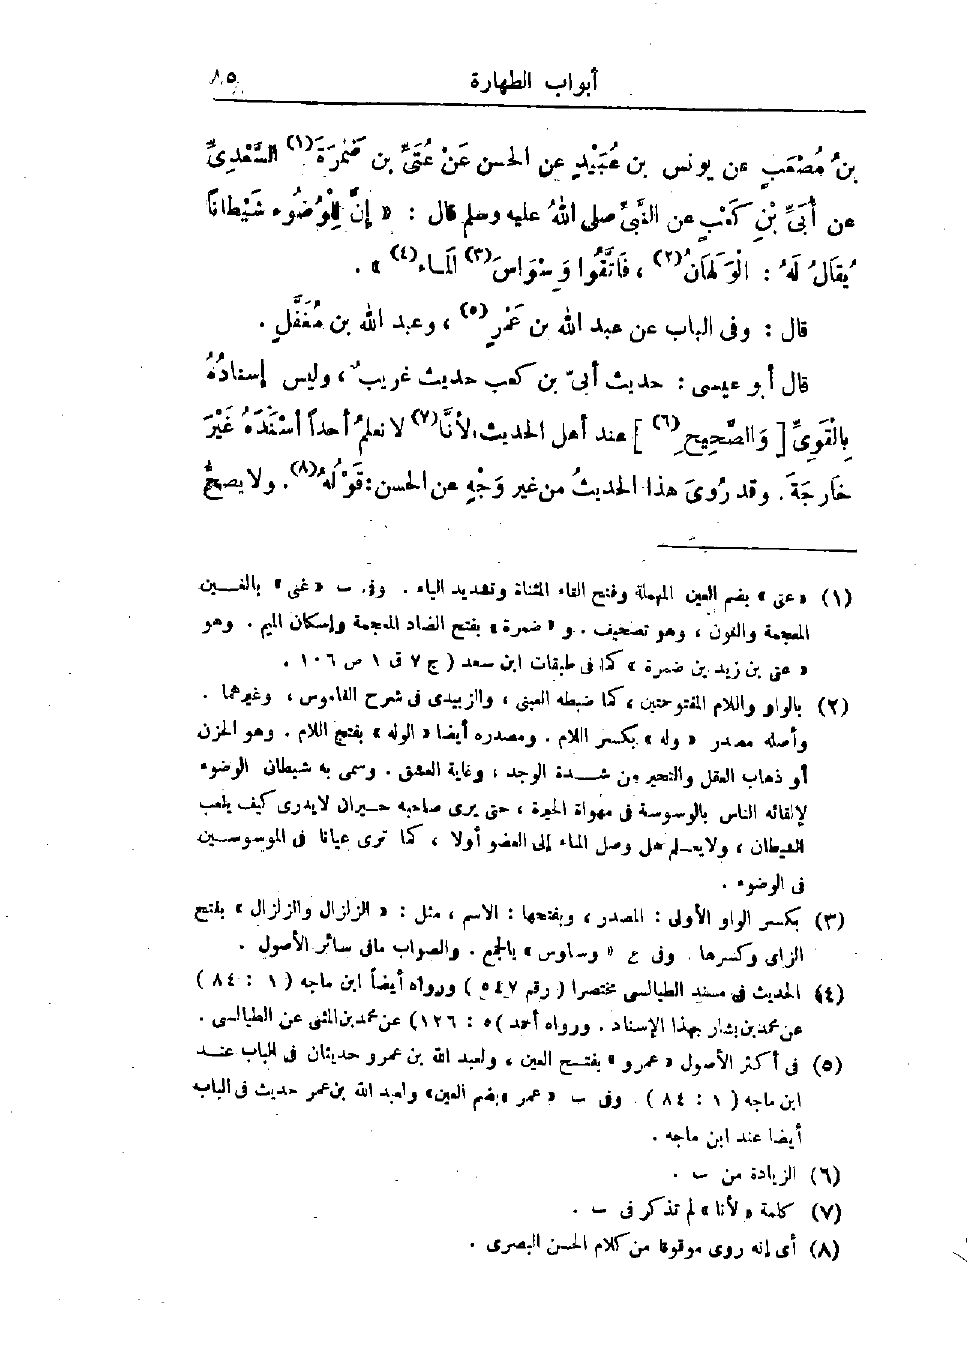 أبواب الطهارة
٨٥
بنُ مُصْعَبٍ عن يونس بن عُبَيْدٍ عن الحسن عَنْ عُتَىِّ بن ضَمْرَةَ (١) السَّعْدِىِّ
عن أُبَىِّ بْنِ كَعْبٍ عن النَّبىِّ صلى اللهُ عليه وسلم قال : « إِنَّ لِلْوُضُوءِ شَيْطَانًا
يُقَالُ لَهُ : الْوَلَهَانُ (٢) ، فَاتَّقُوا وَسْوَاسَ (٣) الْمَاءِ (٤) » .
قال : وفى الباب عن عبد الله بن عَمْرٍ (٥) ، وعبد الله بن مُغَفَّلٍ .
قال أبو عيسى : حديث أبىّ بن كعب حديث غريبٌ ، وليس إسنادُهُ
بِالْقَوِىِّ [ وَالصَّحِيحِ (٦) ] عند أهل الحديث ، لأنَّا (٧) لا نعلمُ أحداً أَسْنَدَهُ غَيْرَ
خَارِجَةَ . وقد رُوِىَ هذا الحديثُ من غير وَجْهٍ عن الحسن : قَوْلَهُ (٨) . ولا يصحُّ
(١) « عتى » بضم العين المهملة وفتح التاء المثناة وتشديد الياء . وفى ب « غنى » بالغين
المعجمة والنون ، وهو تصحيف . و « ضمرة » بفتح الضاد المعجمة وإسكان الميم . وهو
« عتى بن زيد بن ضمرة » كما فى طبقات ابن سعد ( ج ٧ ق ١ ص ١٠٦ .
(٢) بالواو واللام المفتوحتين ، كما ضبطه العينى ، والزبيدى فى شرح القاموس ، وغيرهما .
وأصله مصدر « وله » بكسر اللام . ومصدره أيضا « الوله » بفتح اللام . وهو الحزن
أو ذهاب العقل والتحير من شدة الوجد ، وغاية العشق . وسمى به شيطان الوضوء
لإلقائه الناس بالوسوسة فى مهواة الحيرة ، حتى يرى صاحبه حيران لايدرى كيف يلعب
الشيطان ، ولايعلم هل وصل الماء إلى العضو أولا ، كما ترى عيانا فى الموسوسين
فى الوضوء .
(٣) بكسر الواو الأولى : المصدر ، وبفتحها : الاسم ، مثل : « الزلزال والزلزال » بفتح
الزاى وكسرها . وفى ع « وساوس » بالجمع . والصواب مافى سائر الأصول .
(٤) الحديث فى مسند الطيالسى مختصرا ( رقم ٥٤٧ ) ورواه أيضاً ابن ماجه ( ١ : ٨٤ )
عن محمد بن بشار بهذا الإسناد . ورواه أحمد ) ٥ : ١٢٦) عن محمد بن المثنى عن الطيالسى .
(٥) فى أكثر الأصول « عمرو » بفتح العين ، ولعبد الله بن عمرو حديثان فى الباب عند
ابن ماجه ( ١ : ٨٤ ) . وفى ب « عمر » بضم العين» ولعبد الله بن عمر حديث فى الباب
أيضا عند ابن ماجه .
(٦) الزيادة من ب .
(٧) كلمة « لأنا » لم تذكر فى ب .
(٨) أى إنه روى موقوفا من كلام الحسن البصرى .